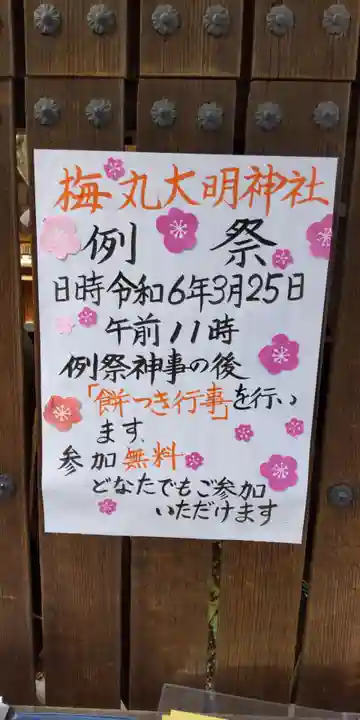 梅丸大明神社
例祭
日時令和6年3月25日
午前11時
例祭神事の後
「餅つき行事」を行い
ます、
参加無料
どなたでもご参加
いただけます